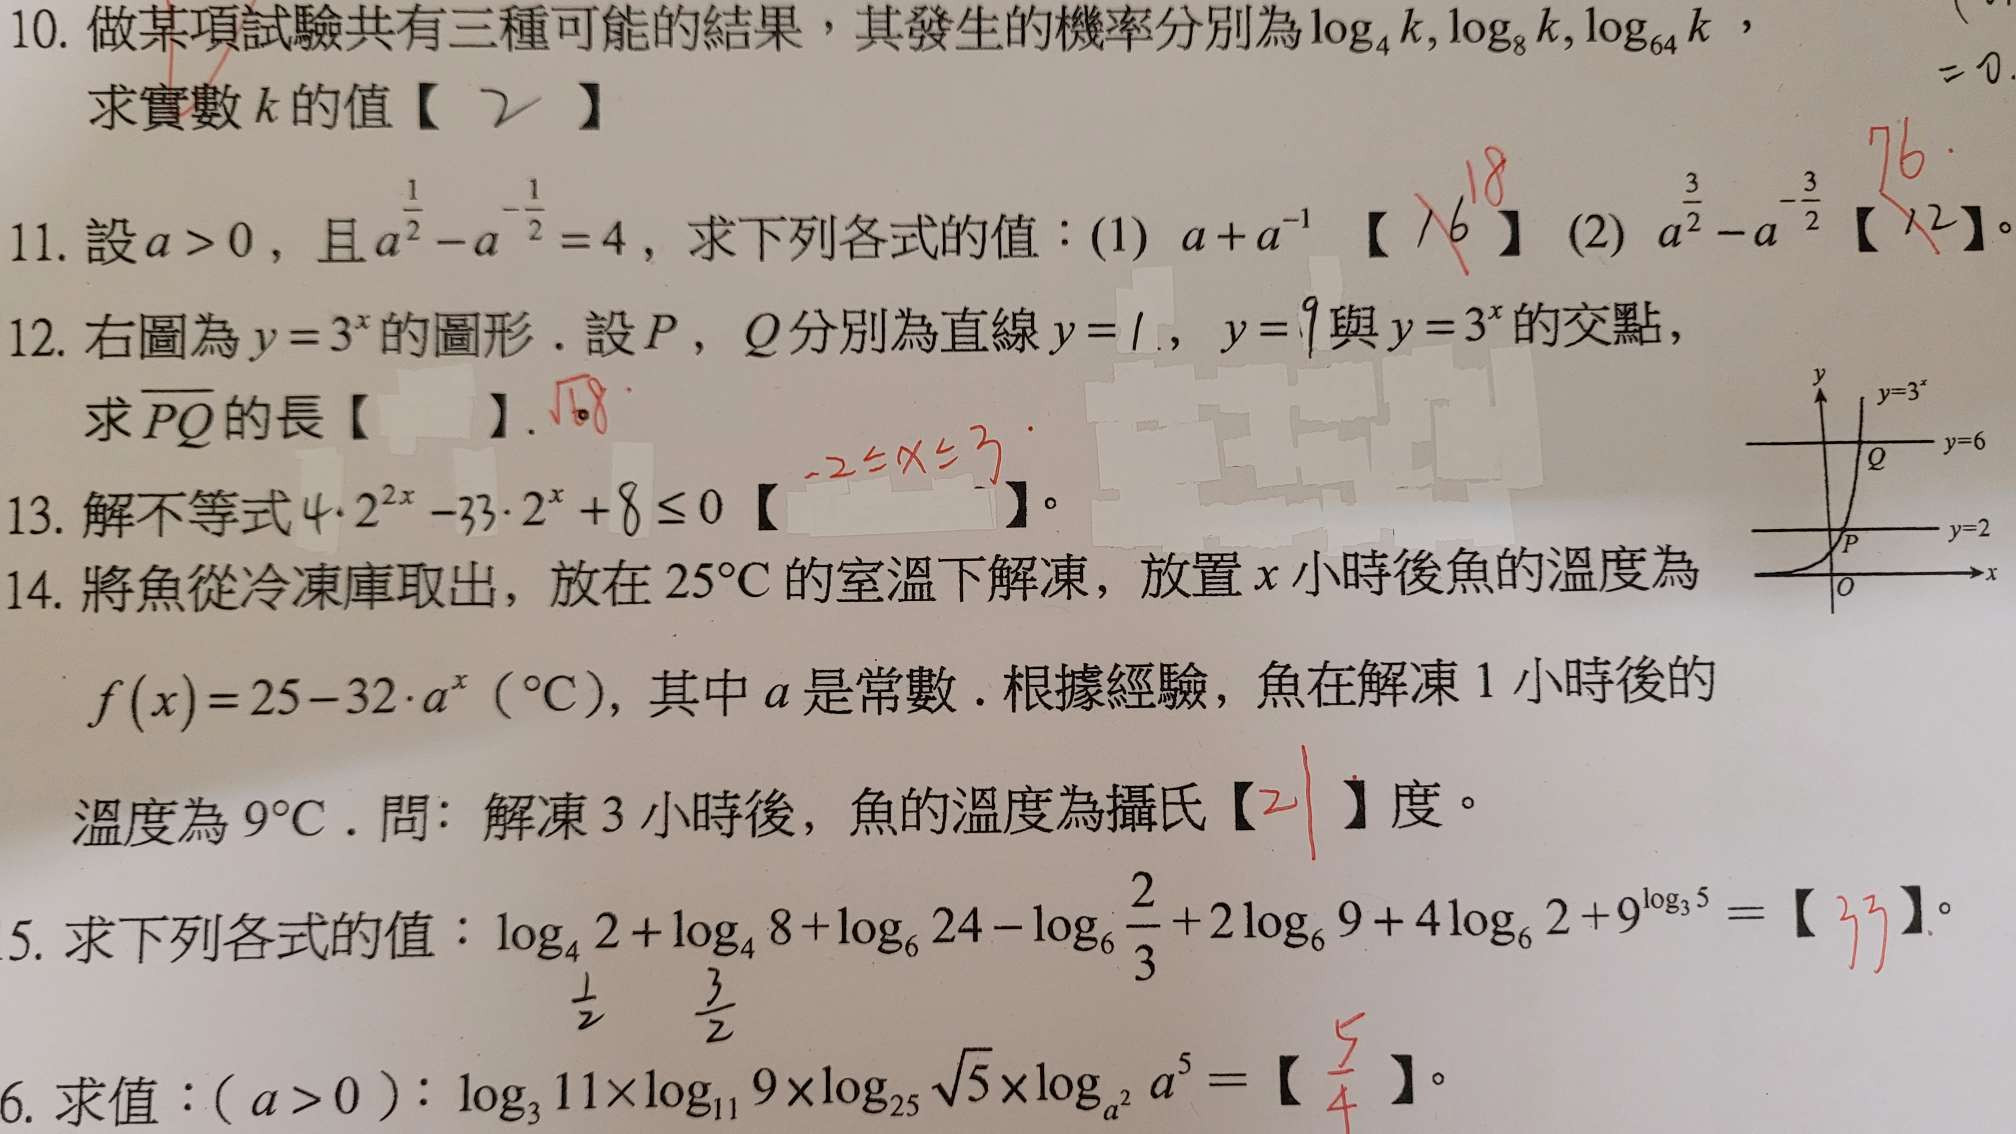 10. 做某項試驗共有三種可能的結果，其發生的機率分別為 log₄ k, log₈ k, log₆₄ k ，
= 0.
求實數 k 的值【 2 】
18
76.
11. 設 a > 0 , 且 a^{1/2} − a^{−1/2} = 4 , 求下列各式的值：(1) a + a⁻¹ 【 16 】 (2) a^{3/2} − a^{−3/2} 【 12 】。
12. 右圖為 y = 3ˣ 的圖形．設 P , Q 分別為直線 y = 1 , y = 9 與 y = 3ˣ 的交點,
求 PQ 的長【 】.
y
y=3ˣ
y=6
Q
y=2
P
x
O
-2 ≤ x ≤ 3
13. 解不等式 4·2²ˣ −33·2ˣ + 8 ≤ 0 【 】。
14. 將魚從冷凍庫取出, 放在 25°C 的室溫下解凍, 放置 x 小時後魚的溫度為
f(x) = 25 − 32·aˣ (°C), 其中 a 是常數．根據經驗, 魚在解凍 1 小時後的
溫度為 9°C．問: 解凍 3 小時後, 魚的溫度為攝氏【21 】度。
5. 求下列各式的值：log₄ 2 + log₄ 8 + log₆ 24 − log₆ 2/3 + 2 log₆ 9 + 4 log₆ 2 + 9^{log₃ 5} = 【 33 】。
1/2 3/2
6. 求值：( a > 0 )：log₃ 11 × log₁₁ 9 × log₂₅ √5 × log_{a²} a⁵ = 【 5/4 】。